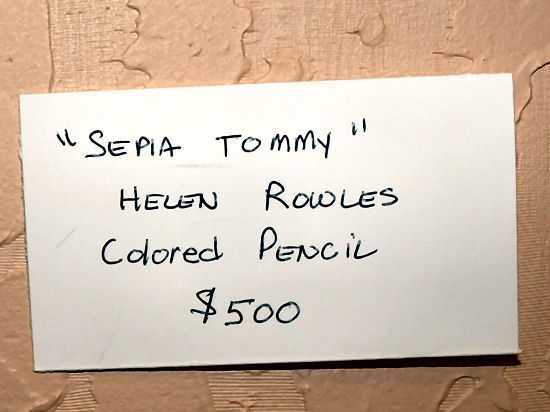 "SEPIA TOMMY"
HELEN ROWLES
Colored PENCIL
$500